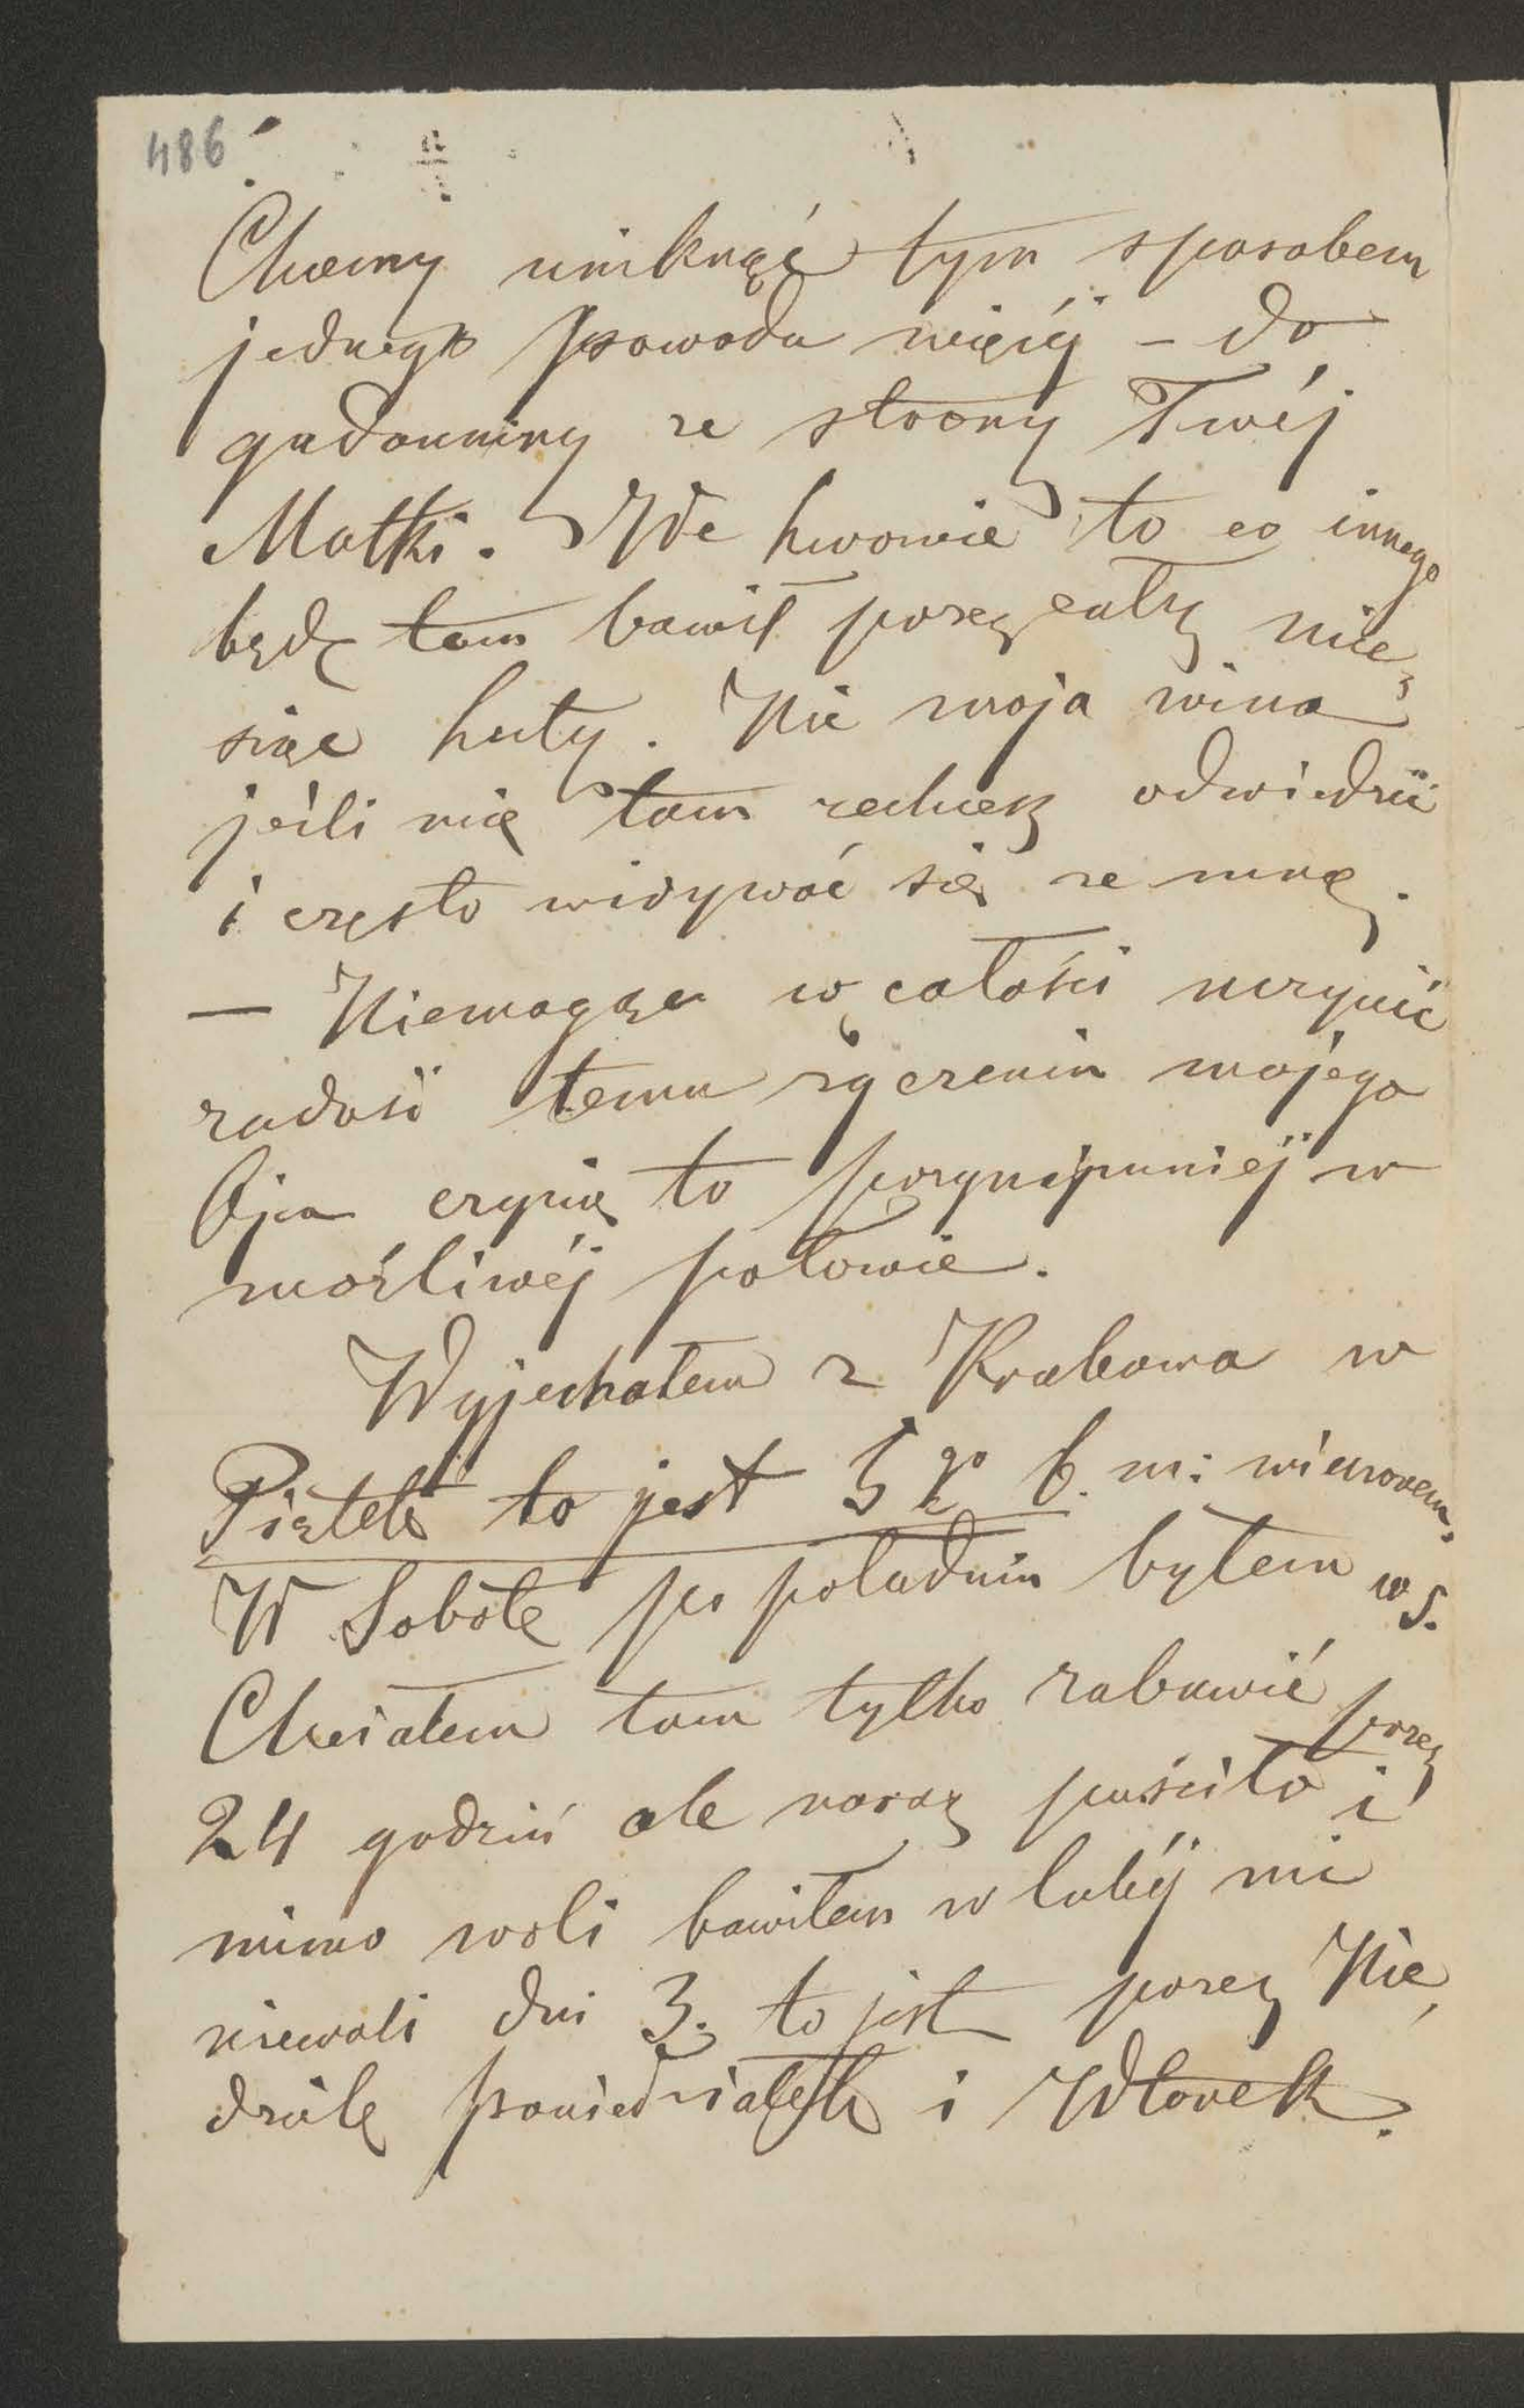 486
Chcemy uniknąć tym sposobem
jednego powodu więcéj – do
gadaniny ze strony Twéj
Matki. We Lwowie to co innego
będę tam bawił przez cały mie„
siąc Luty. Nie moja wina
jeśli mię tam zechcesz odwiedzić
i często widywać się ze mną.
— Niemogąc w całości uczynić
zadość temu życzeniu mojego
Ojca czynię to przynajmniéj w
możliwéj połowie.
Wyjechałem z Krakowa w
Piątek to jest 5go b. m: wieczorem.
W Sobotę po południu byłem w S.
Chciałem tam tylko zabawić przez
24 godziń ale naraz puściło i
mimo woli bawiłem w lubéj mi
niewoli dni 3. to jest przez Nie„
dzielę poniedziałek i Wtorek.